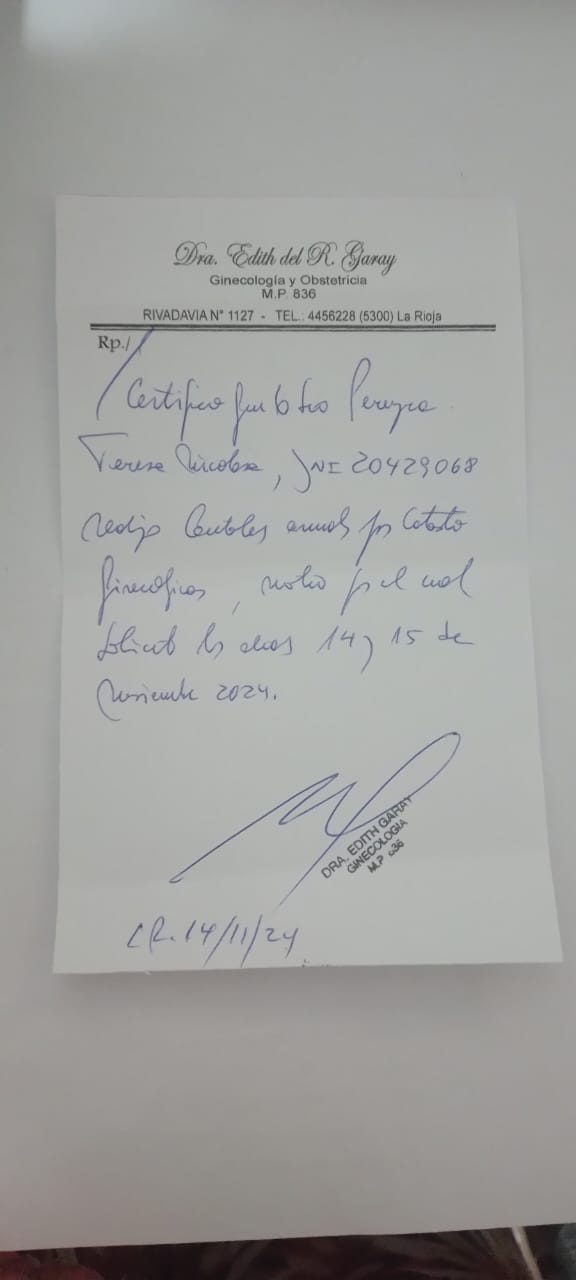 Dra. Edith del R. Garay
Ginecología y Obstetricia
M.P. 836
RIVADAVIA N° 1127 - TEL.: 4456228 (5300) La Rioja
Rp./
Certifico que la Sra Pereyra
Teresa Nicolasa, DNI 20429068
realizó controles anual por
, motivo por el cual
solicito los días 14 y 15 de
Noviembre 2024.
DRA. EDITH GARAY
GINECOLOGIA
M.P. 836
LR. 14/11/24